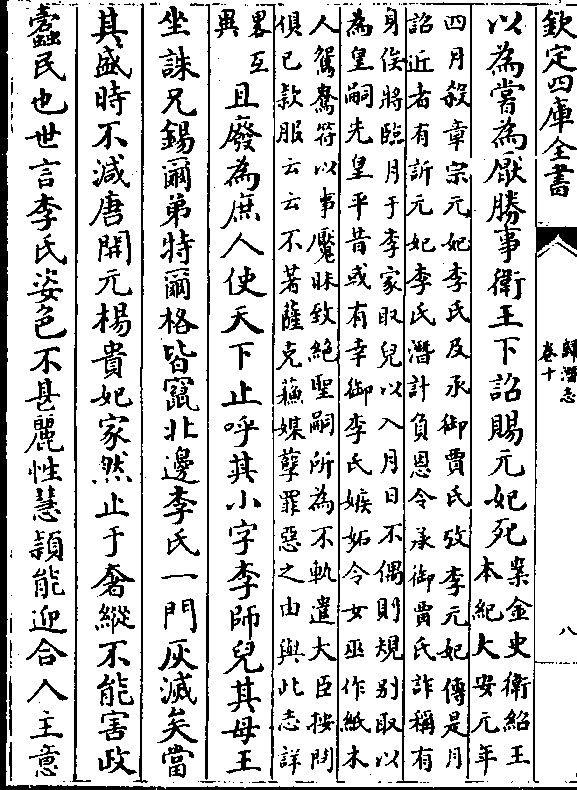 欽定四庫全書
歸潛志
卷十
八
以為嘗為厭勝事衛王下詔賜元妃死
案金史衛紹王
本紀大安元年
四月殺章宗元妃李氏及承御賈氏攷李元妃傳是月
詔近者有訴元妃李氏潛計負恩令承御賈氏詐稱有
身俟將臨月于李家取兒以入月日不偶則規别取以
為皇嗣先皇平昔或有幸御李氏嫉妬令女巫作紙木
人鴛鴦符以事魘昧致絶聖嗣所為不軌遣大臣按問
俱已款服云云不著薩克蘓媒孽罪惡之由與此志詳
畧互
異
且廢為庶人使天下止呼其小字李師兒其母王
坐誅兄錫爾弟特爾格皆竄北邊李氏一門灰滅矣當
其盛時不減唐開元楊貴妃家然止于奢縱不能害政
蠹民也世言李氏姿色不甚麗性慧穎能迎合人主意